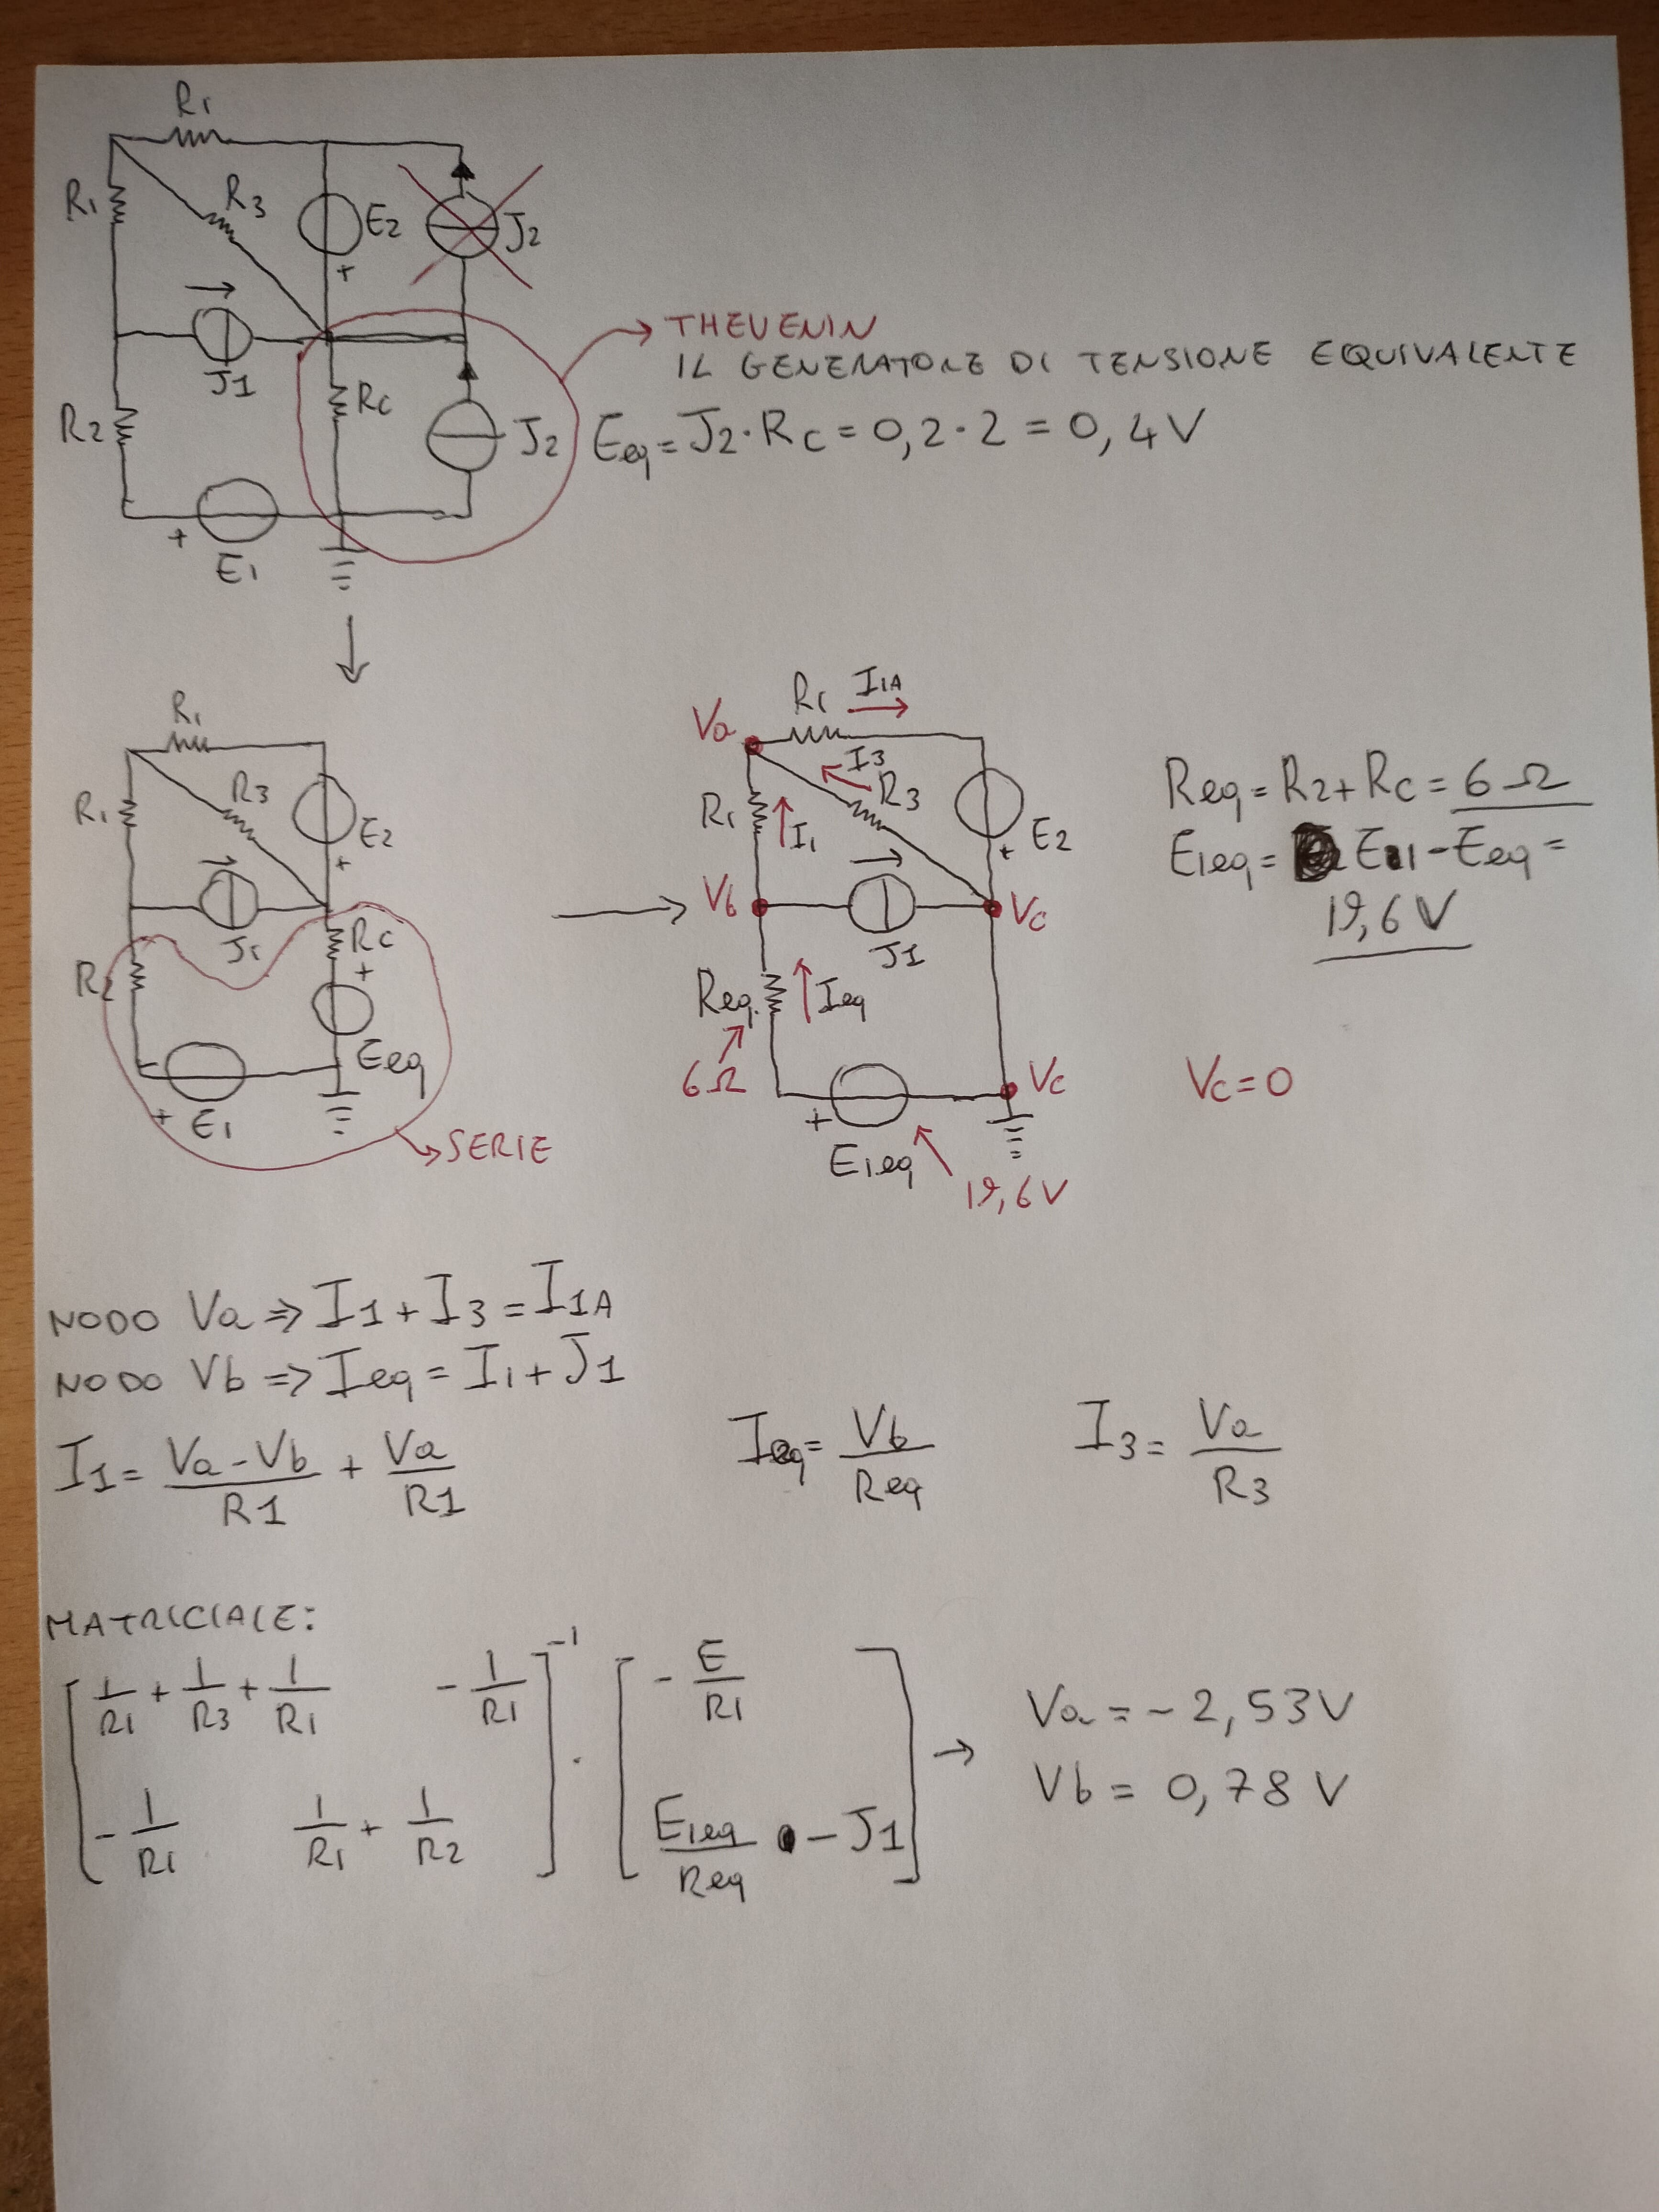 R1
R1
R3
E2
J2
+
J1
Rc
R2
J2
+
E1
THEVENIN
IL GENERATORE DI TENSIONE EQUIVALENTE
Eeq = J2 · Rc = 0,2 · 2 = 0,4 V
R1
R1
R3
E2
+
J1
Rc
+
R2
Eeq
+
E1
SERIE
R1 I1A
Va
I3
R3
R1
I1
E2
+
Vb
Vc
J1
Req
Ieq
6Ω
Vc
+
E1eq
19,6V
Req = R2 + Rc = 6Ω
E1eq = E1 - Eeq =
19,6 V
Vc = 0
NODO Va => I1 + I3 = I1A
NODO Vb => Ieq = I1 + J1
I1 = (Va - Vb)/R1 + Va/R1
Ieq = Vb/Req
I3 = Va/R3
MATRICIALE:
[ 1/R1 + 1/R3 + 1/R1   - 1/R1 ]-1 · [ - E/R1 ] → Va = - 2,53V
[ - 1/R1   1/R1 + 1/R2 ] [ E1eq/Req - J1 ] Vb = 0,78 V